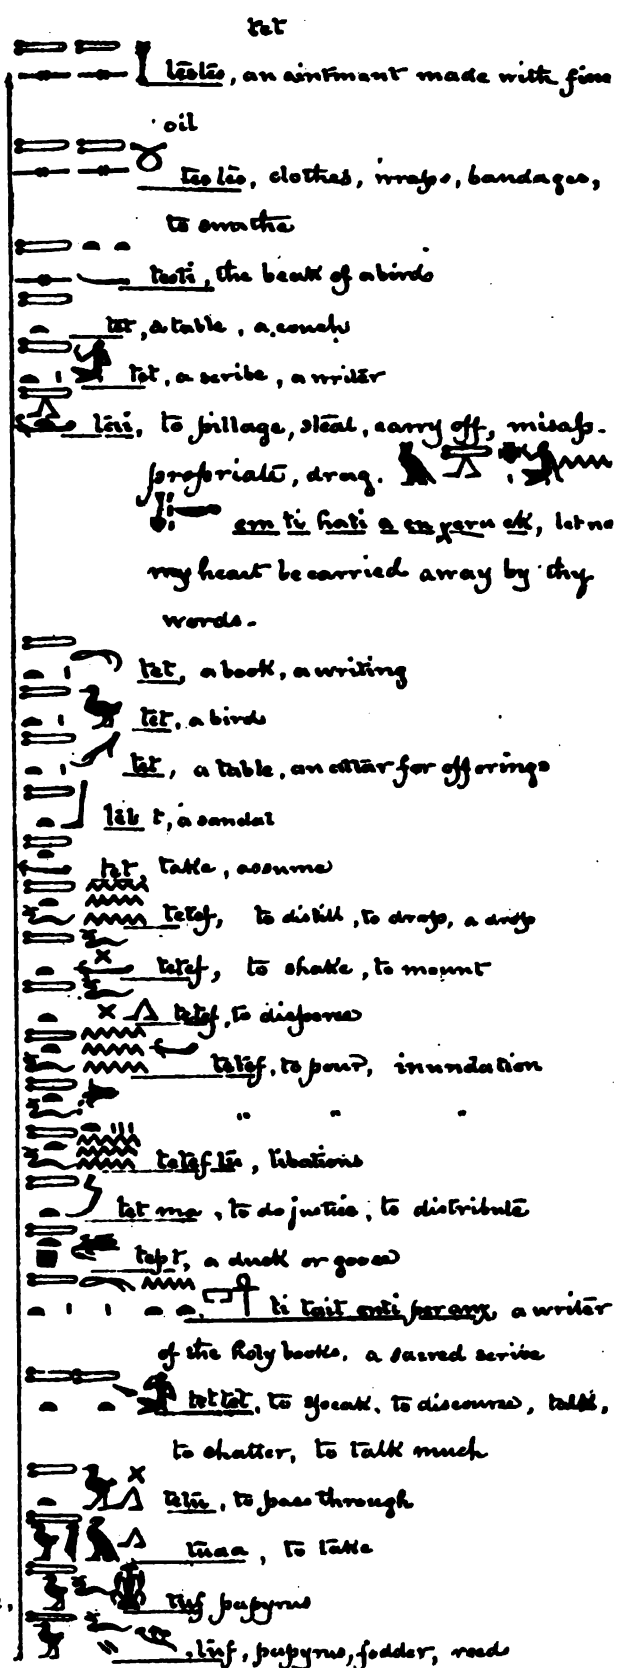 tet
testes, an ointment made with fine
oil
testes, clothes, wraps, bandages,
to swathe
testi, the beak of a bird
tet, a table, a couch
tet, a scribe, a writer
tai, to pillage, steal, carry off, misap-
propriate, drag.
em ti hati a en xeru ek, let no
my heart be carried away by thy
words.
tet, a book, a writing
tet, a bird
tet, a table, an altar for offerings
teb t, a sandal
tet, take, assume
tetef, to distill, to drop, a drop
tetef, to shake, to mount
tetef, to disperse
tetef, to pour, inundation
" " "
tetef tu, libations
tet ma, to do justice, to distribute
tept, a duck or goose
ti tait enti per anx, a writer
of the holy books, a sacred scribe
tettet, to speak, to discourse, talk,
to chatter, to talk much
tetu, to pass through
tuaa, to take
tuf papyrus
tuf, papyrus, fodder, reed